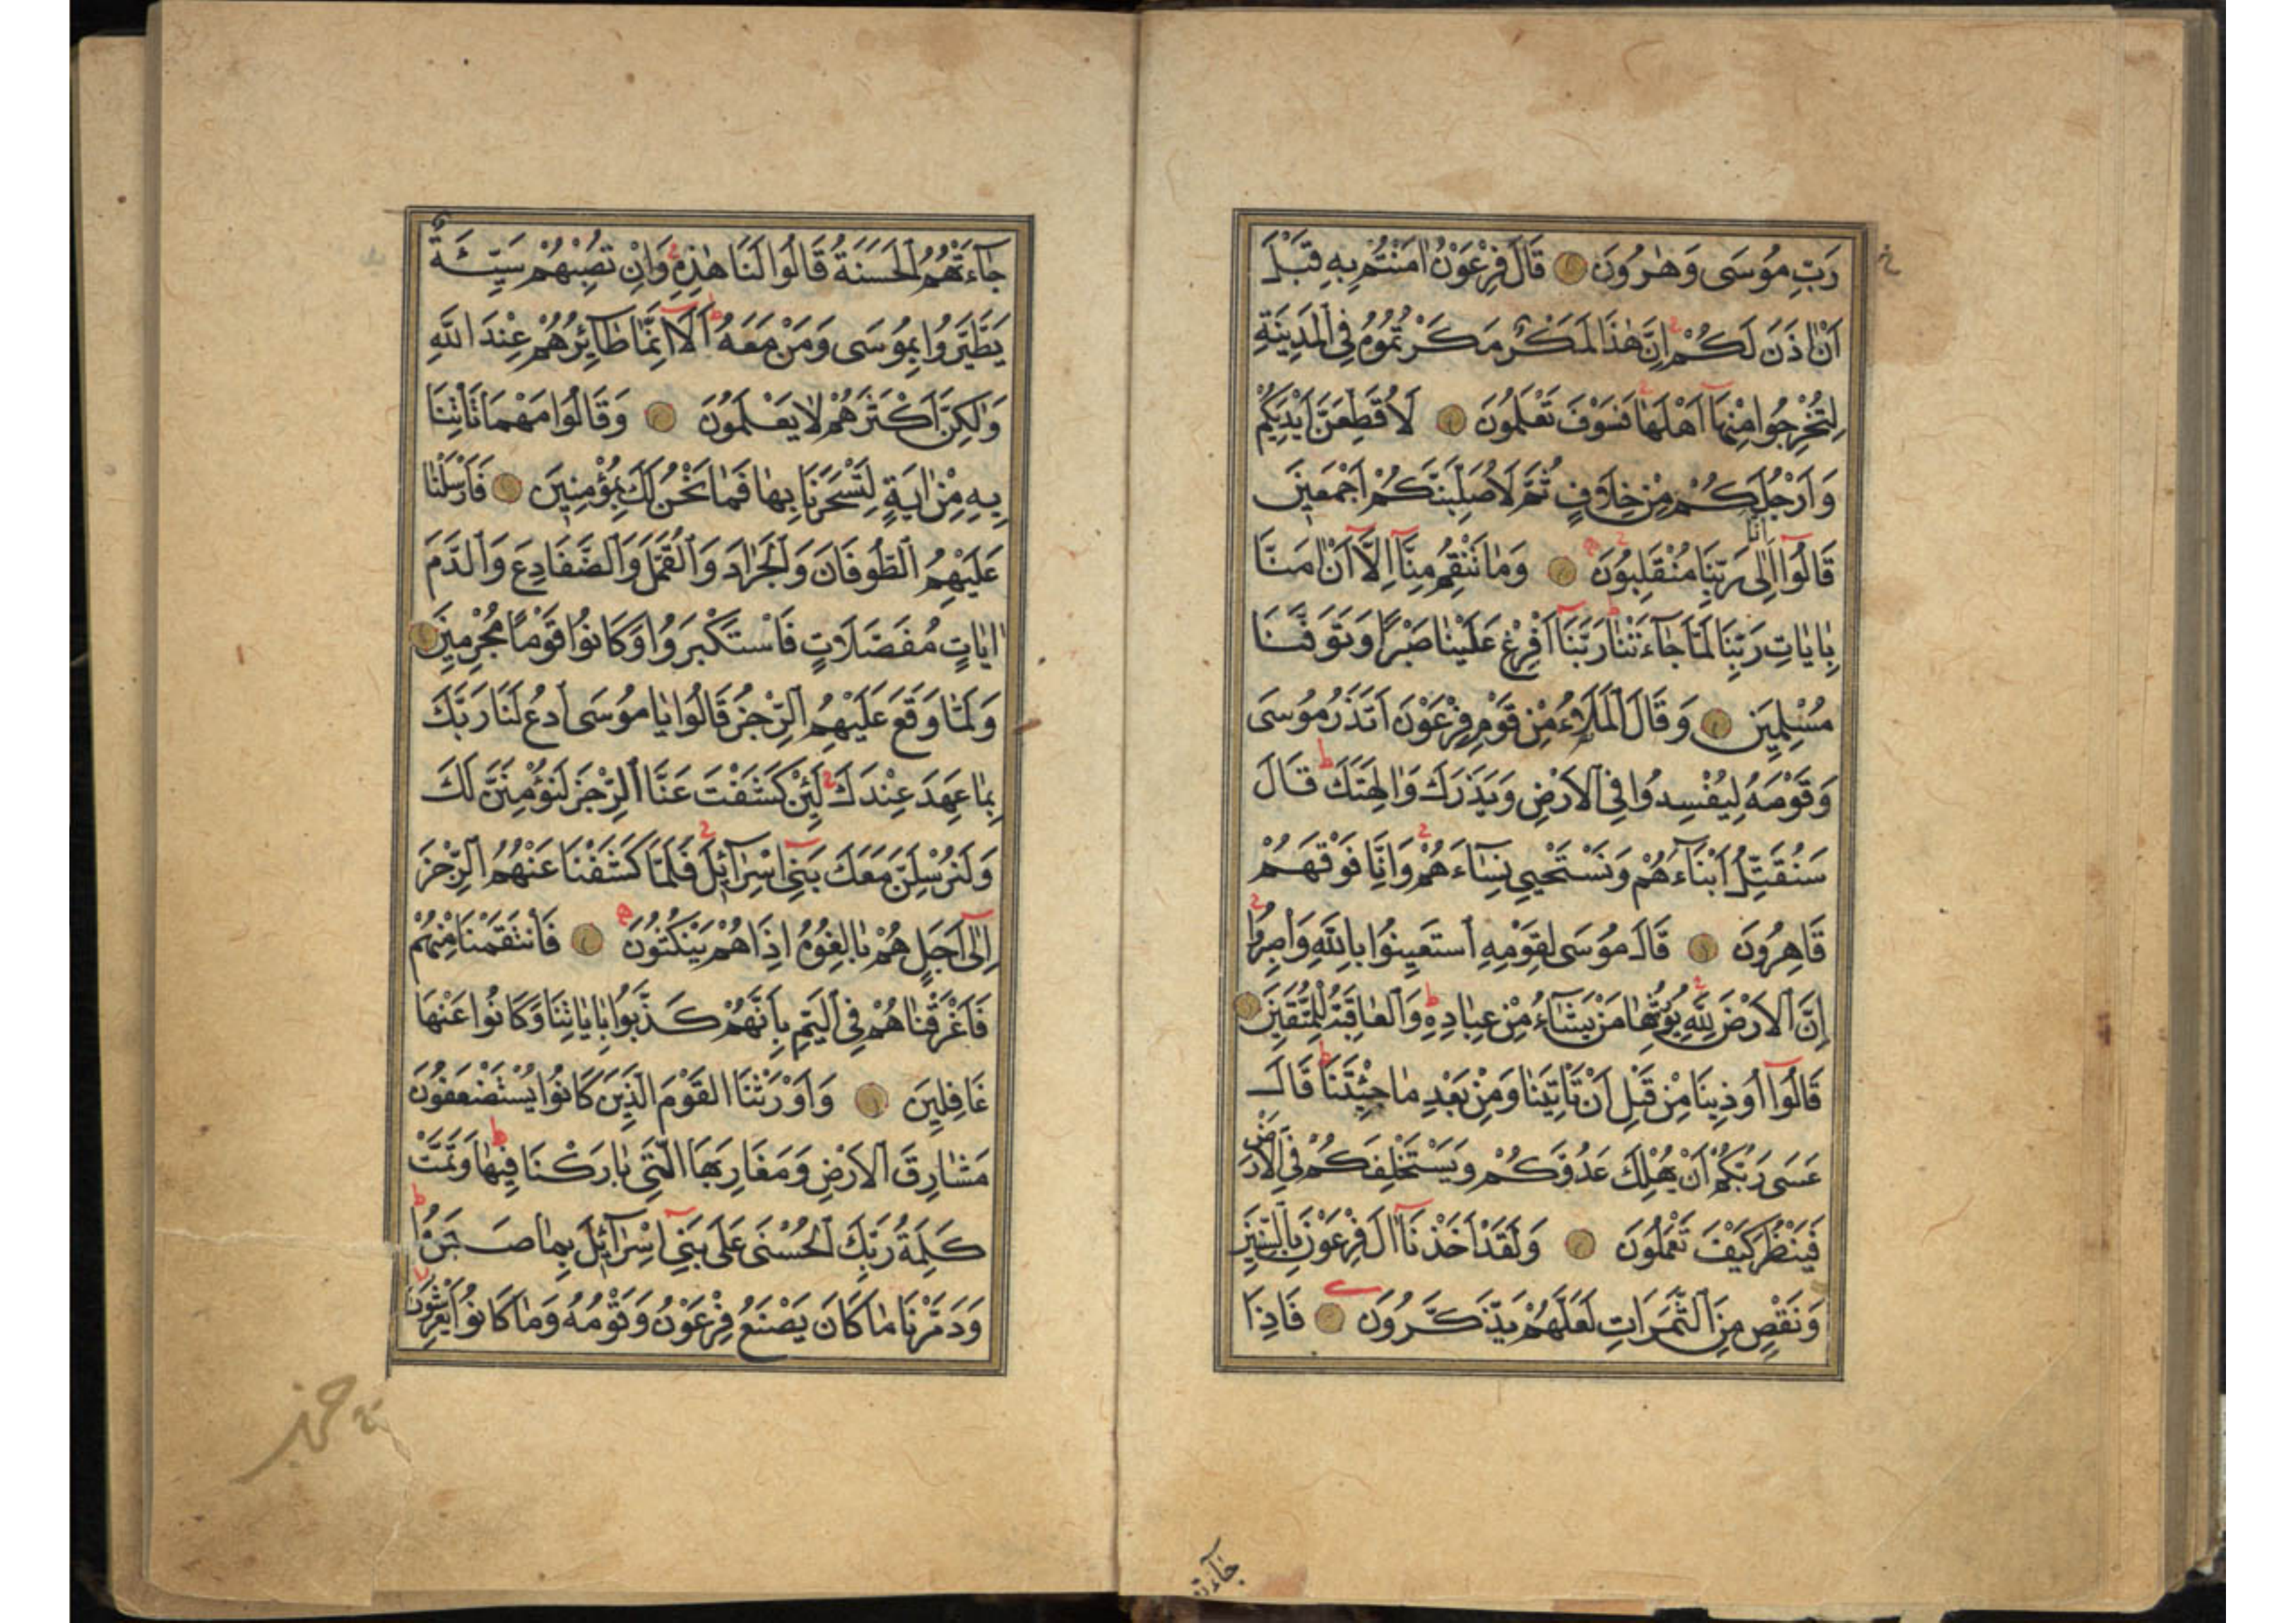 رَبِّ مُوسَى وَهٰرُونَ قَالَ فِرْعَوْنُ اٰمَنْتُمْ بِهِ قَبْلَ
اَنْ اٰذَنَ لَكُمْ اِنَّ هٰذَا لَمَكْرٌ مَكَرْتُمُوهُ فِي الْمَدِينَةِ
لِتُخْرِجُوا مِنْهَآ اَهْلَهَا فَسَوْفَ تَعْلَمُونَ لَاُقَطِّعَنَّ اَيْدِيَكُمْ
وَاَرْجُلَكُمْ مِنْ خِلَافٍ ثُمَّ لَاُصَلِّبَنَّكُمْ اَجْمَعِينَ
قَالُوٓا اِنَّا اِلٰى رَبِّنَا مُنْقَلِبُونَ وَمَا تَنْقِمُ مِنَّآ اِلَّآ اَنْ اٰمَنَّا
بِاٰيَاتِ رَبِّنَا لَمَّا جَآءَتْنَا رَبَّنَآ اَفْرِغْ عَلَيْنَا صَبْرًا وَتَوَفَّنَا
مُسْلِمِينَ وَقَالَ الْمَلَاُ مِنْ قَوْمِ فِرْعَوْنَ اَتَذَرُ مُوسَى
وَقَوْمَهُ لِيُفْسِدُوا فِي الْاَرْضِ وَيَذَرَكَ وَاٰلِهَتَكَ قَالَ
سَنُقَتِّلُ اَبْنَآءَهُمْ وَنَسْتَحْيِي نِسَآءَهُمْ وَاِنَّا فَوْقَهُمْ
قَاهِرُونَ قَالَ مُوسَى لِقَوْمِهِ اسْتَعِينُوا بِاللّٰهِ وَاصْبِرُوا
اِنَّ الْاَرْضَ لِلّٰهِ يُورِثُهَا مَنْ يَشَآءُ مِنْ عِبَادِهِ وَالْعَاقِبَةُ لِلْمُتَّقِينَ
قَالُوٓا اُوذِينَا مِنْ قَبْلِ اَنْ تَاْتِيَنَا وَمِنْ بَعْدِ مَا جِئْتَنَا قَالَ
عَسَى رَبُّكُمْ اَنْ يُهْلِكَ عَدُوَّكُمْ وَيَسْتَخْلِفَكُمْ فِي الْاَرْضِ
فَيَنْظُرَ كَيْفَ تَعْمَلُونَ وَلَقَدْ اَخَذْنَآ اٰلَ فِرْعَوْنَ بِالسِّنِينَ
وَنَقْصٍ مِنَ الثَّمَرَاتِ لَعَلَّهُمْ يَذَّكَّرُونَ فَاِذَا
جَآءَتْهُمُ الْحَسَنَةُ قَالُوا لَنَا هٰذِهِ وَاِنْ تُصِبْهُمْ سَيِّئَةٌ
يَطَّيَّرُوا بِمُوسَى وَمَنْ مَعَهُ اَلَآ اِنَّمَا طَآئِرُهُمْ عِنْدَ اللّٰهِ
وَلٰكِنَّ اَكْثَرَهُمْ لَا يَعْلَمُونَ وَقَالُوا مَهْمَا تَاْتِنَا
بِهِ مِنْ اٰيَةٍ لِتَسْحَرَنَا بِهَا فَمَا نَحْنُ لَكَ بِمُؤْمِنِينَ فَاَرْسَلْنَا
عَلَيْهِمُ الطُّوفَانَ وَالْجَرَادَ وَالْقُمَّلَ وَالضَّفَادِعَ وَالدَّمَ
اٰيَاتٍ مُفَصَّلَاتٍ فَاسْتَكْبَرُوا وَكَانُوا قَوْمًا مُجْرِمِينَ
وَلَمَّا وَقَعَ عَلَيْهِمُ الرِّجْزُ قَالُوا يَا مُوسَى ادْعُ لَنَا رَبَّكَ
بِمَا عَهِدَ عِنْدَكَ لَئِنْ كَشَفْتَ عَنَّا الرِّجْزَ لَنُؤْمِنَنَّ لَكَ
وَلَنُرْسِلَنَّ مَعَكَ بَنِيٓ اِسْرَآئِلَ فَلَمَّا كَشَفْنَا عَنْهُمُ الرِّجْزَ
اِلٰٓى اَجَلٍ هُمْ بَالِغُوهُ اِذَا هُمْ يَنْكُثُونَ فَانْتَقَمْنَا مِنْهُمْ
فَاَغْرَقْنَاهُمْ فِي الْيَمِّ بِاَنَّهُمْ كَذَّبُوا بِاٰيَاتِنَا وَكَانُوا عَنْهَا
غَافِلِينَ وَاَوْرَثْنَا الْقَوْمَ الَّذِينَ كَانُوا يُسْتَضْعَفُونَ
مَشَارِقَ الْاَرْضِ وَمَغَارِبَهَا الَّتِي بَارَكْنَا فِيهَا وَتَمَّتْ
كَلِمَةُ رَبِّكَ الْحُسْنَى عَلَى بَنِيٓ اِسْرَآئِلَ بِمَا صَبَرُوا
وَدَمَّرْنَا مَا كَانَ يَصْنَعُ فِرْعَوْنُ وَقَوْمُهُ وَمَا كَانُوا يَعْرِشُونَ